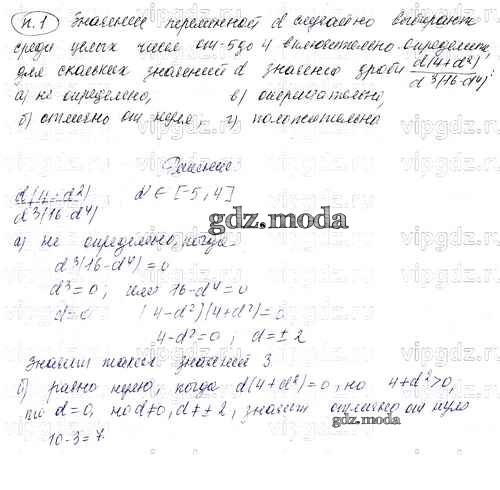 п.1 Значение переменной d случайно выбирают
среди целых чисел от -5 до 4 включительно. Определите,
для скольких значений d значение дроби d(4+d²)/d³(16-d⁴):
а) не определено, в) отрицательно,
б) отлично от нуля, г) положительно
Решение
d(4+d²)/d³(16-d⁴) d ∈ [-5, 4]
gdz.moda
а) не определено, когда
d³(16-d⁴)=0
d³=0, или 16-d⁴=0
d=0 (4-d²)(4+d²)=0
4-d²=0, d=±2
Значит таких значений 3
б) равно нулю, когда d(4+d²)=0, но 4+d²>0,
то d=0, но d≠0, d≠±2, значит отлично от нуля
10-3=7